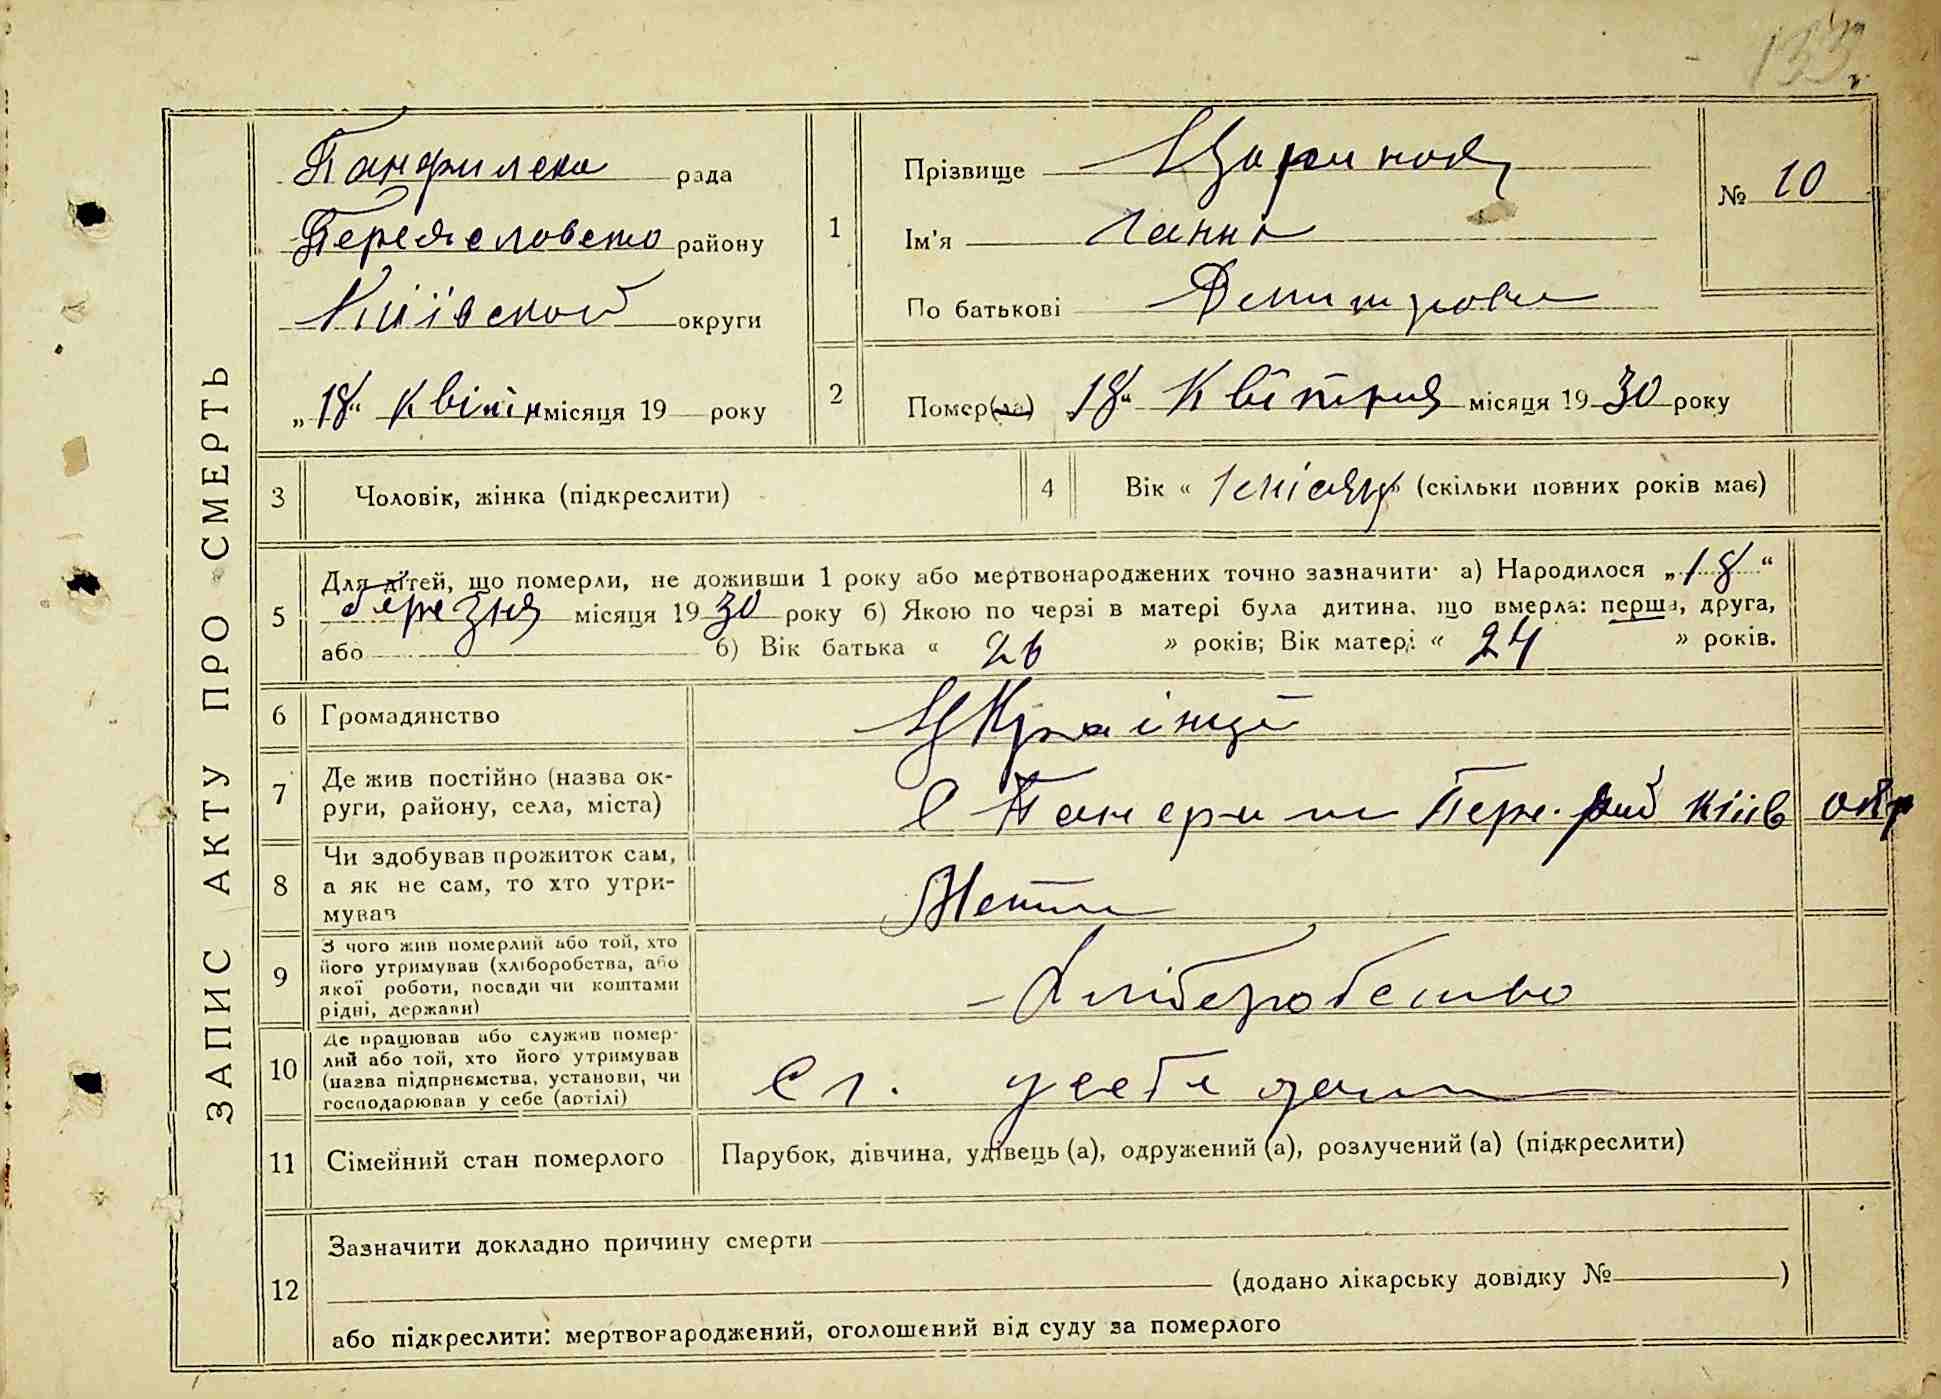 133
ЗАПИС АКТУ ПРО СМЕРТЬ
Панфилска рада
Переяславсько району
Київской округи
„18“ квітн місяця 19 року
1
Прізвище Цариная
Ім'я Ганна
По батькові Дмитровн
№ 10
2
Помер(ла) 18“ Квітня місяця 1930 року
3
Чоловік, жінка (підкреслити)
4
Вік « 1 місяц» (скільки повних років має)
5
Для дітей, що померли, не доживши 1 року або мертвонароджених точно зазначити· а) Народилося „18“
березня місяця 1930 року б) Якою по черзі в матері була дитина, що вмерла: перша, друга,
або б) Вік батька « 26 » років; Вік матері « 24 » років.
6
Громадянство
Українці
7
Де жив постійно (назва ок-
руги, району, села, міста)
с Панфили Пере. рай Київ окр
8
Чи здобував прожиток сам,
а як не сам, то хто утри-
мував
9
З чого жив померлий або той, хто
його утримував (хліборобства, або
якої роботи, посади чи коштами
рідні, держави)
Хліборобство
10
Де працював або служив помер-
лий або той, хто його утримував
(назва підприємства, установи, чи
господарював у себе (артілі)
у себе дома
11
Сімейний стан померлого
Парубок, дівчина, удівець (а), одружений (а), розлучений (а) (підкреслити)
12
Зазначити докладно причину смерти
(додано лікарську довідку № )
або підкреслити: мертвонароджений, оголошений від суду за померлого